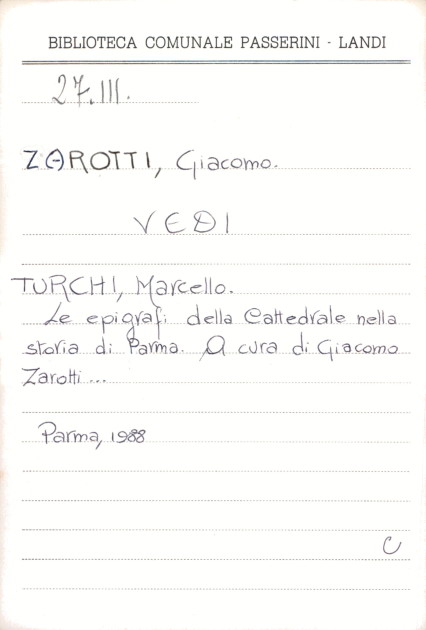 BIBLIOTECA COMUNALE PASSERINI - LANDI
27.III.
ZAROTTI, Giacomo.
VEDI
TURCHI, Marcello.
Le epigrafi della Cattedrale nella
storia di Parma. A cura di Giacomo
Zarotti...
Parma, 1988
C